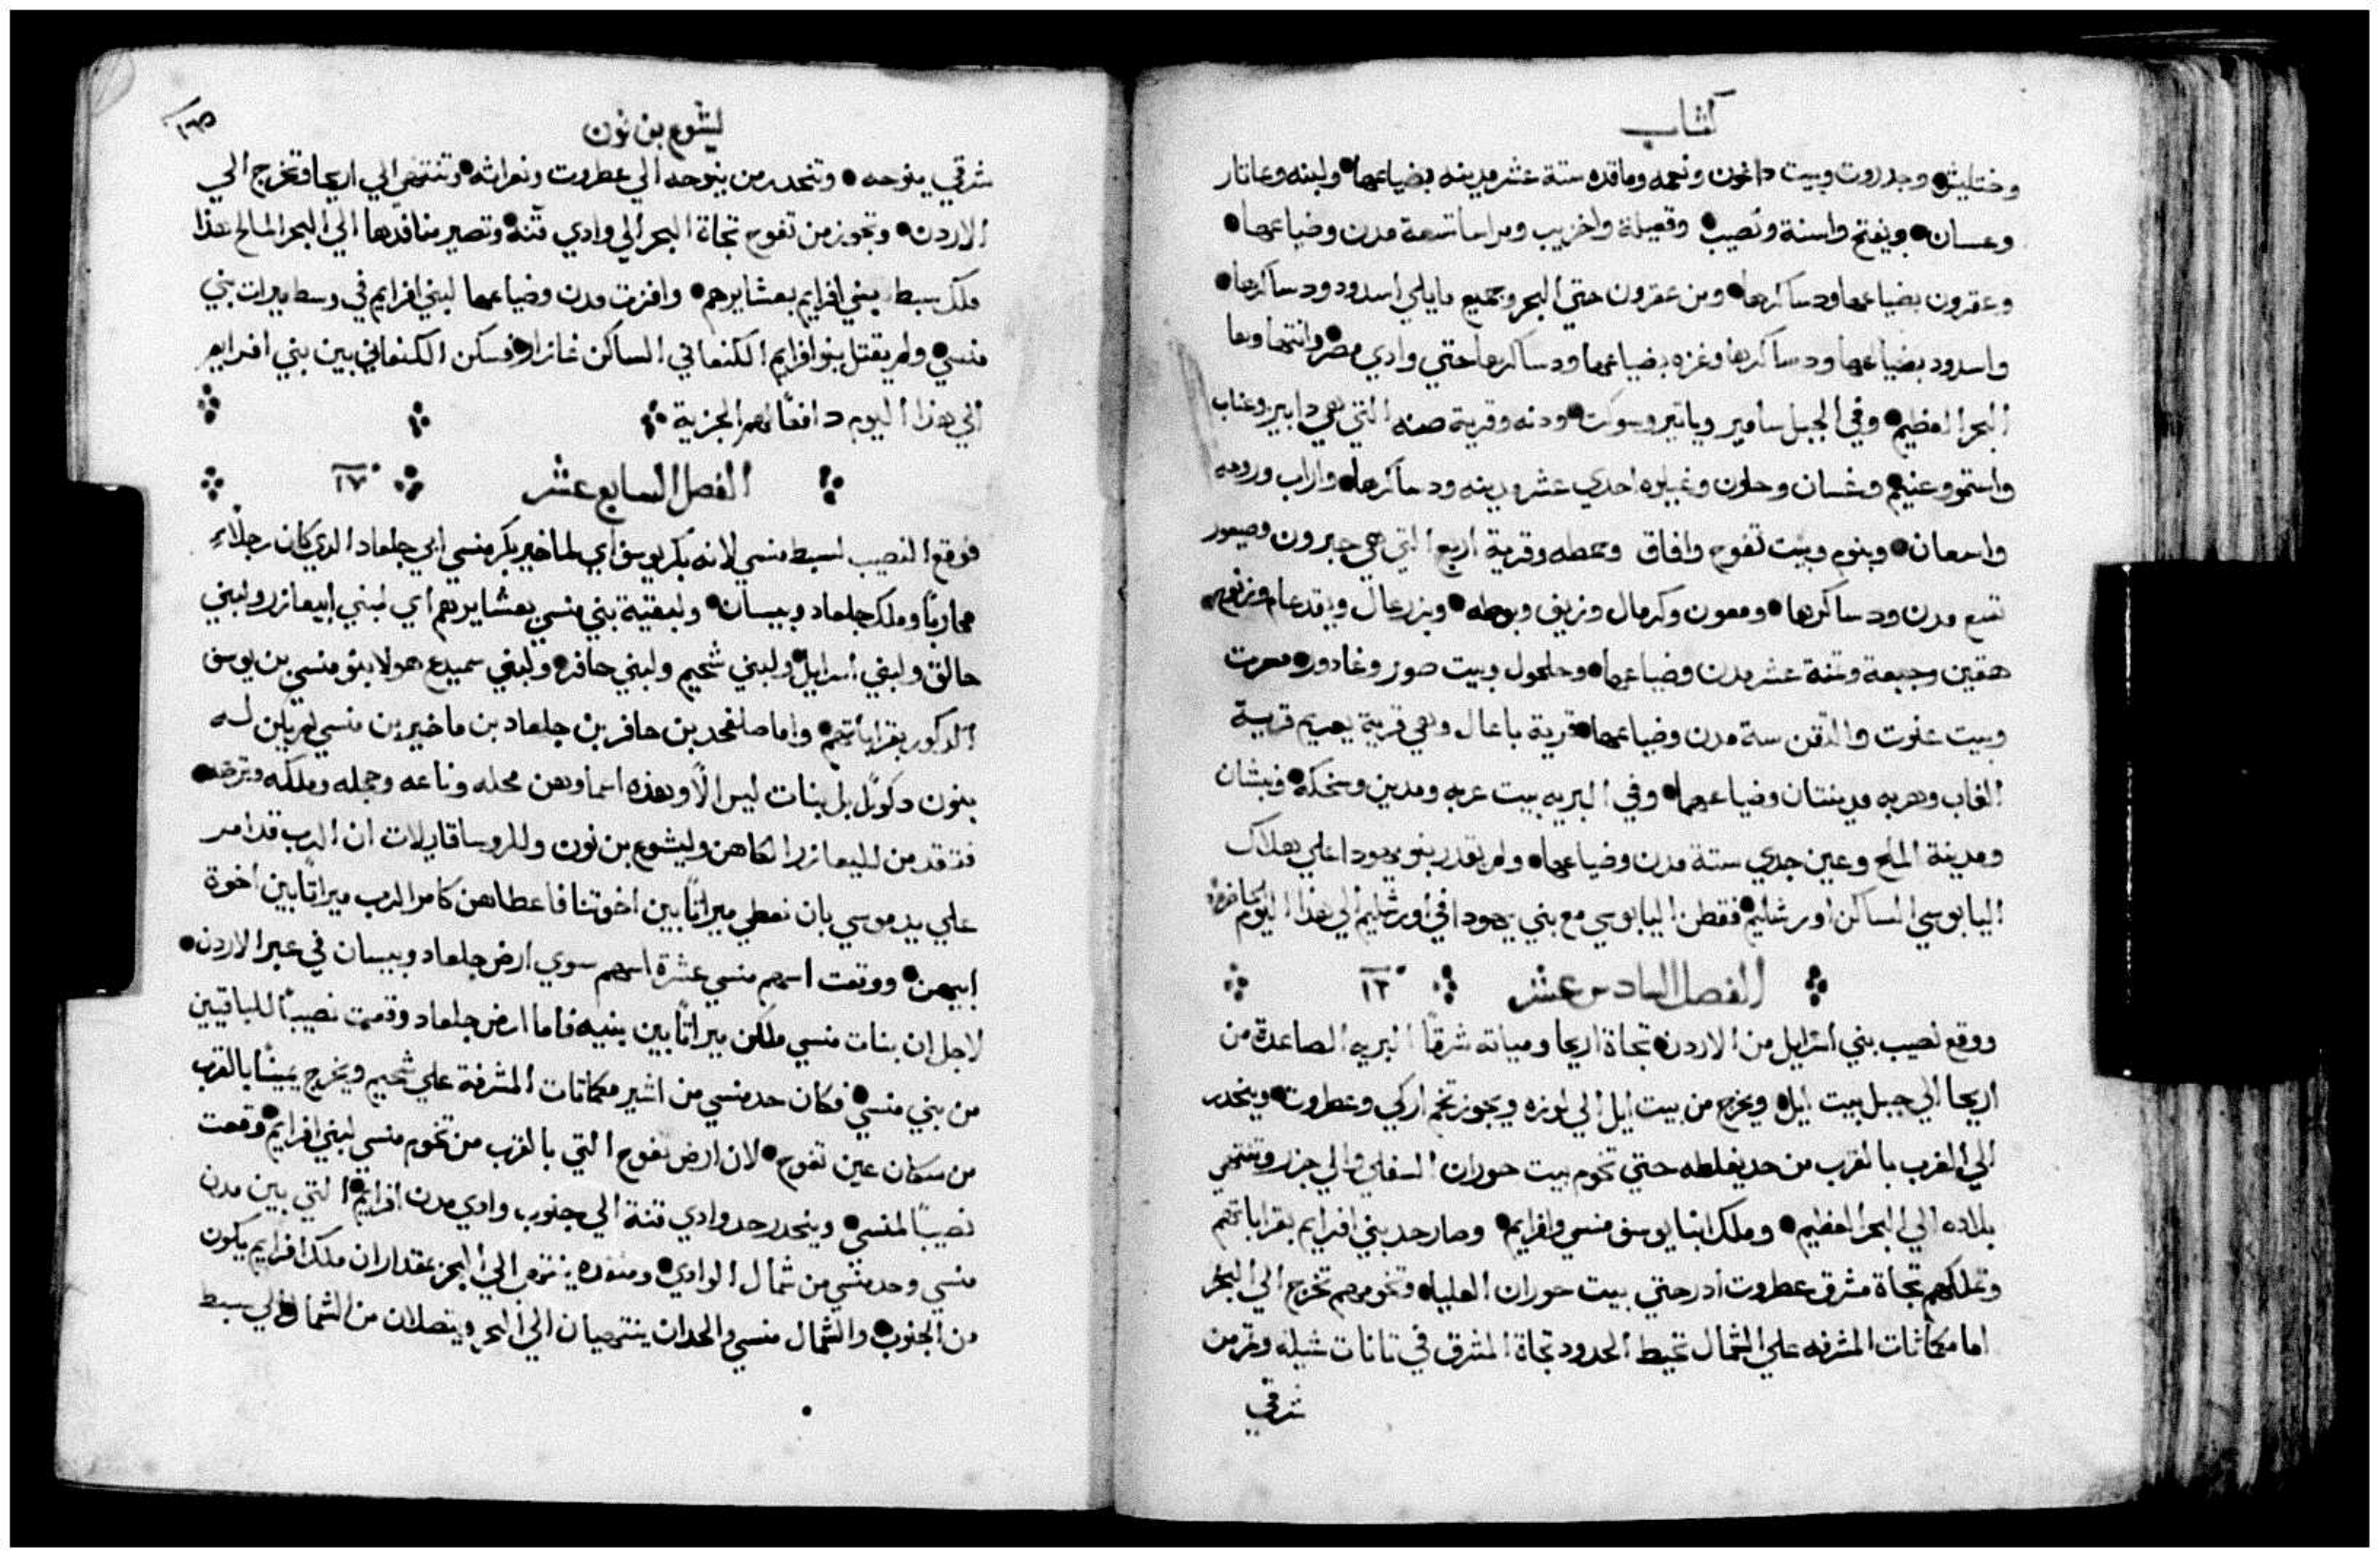 كتاب
وختليش وجدروت وبيت داغون ونعمه وماقده ستة عشر مدينه بضياعها ولبنه وعاتار
وعسان ويفتح واسنة ونصيب وقعيلة واخزيب ومراسا تسعة مدن وضياعها
وعقرون بضياعها ودساكرها ومن عقرون حتي البحر وجميع مايلي اسدود ودساكرها
واسدود بضياعها ودساكرها وغزه بضياعها ودساكرها حتي وادي مصر وانتهاوها
البحر العظيم وفي الجبل سامير وياتير وسوكت ودنه وقرية صنه التي هي دابير وعناب
واستمو وعنيم وغسان وحلون وغيلوه احدي عشر مدينه ودساكرها واراب ورومه
واسعان وينوم وبيت تفوح وافاق وعطه وقرية اربع التي هي حبرون وصيعور
تسع مدن ودساكرها ومعون وكرمال وزيف ويوطه ويزرعال ويقدعام وزنوح
هقين وجبعة وتمنة عشر مدن وضياعها وحلحول وبيت صور وغادور ومعرت
وبيت عنوت والتقن ستة مدن وضياعها قرية باعال وهي قرية يعريم قرية
الغاب وهربه مدينتان وضياعهما وفي البريه بيت عربه ومدين وسخكة ونبشان
ومدينة الملح وعين جدي ستة مدن وضياعها ولم يقدر بنو يهودا علي هلاك
اليابوسي الساكن اورشليم فقطن اليابوسي مع بني يهودا في اورشليم الي هذا اليوم الحاضر
الفصل السادس عشر ١٦
ووقع نصيب بني اسرايل من الاردن تجاة اريحا ومياته شرقًا البريه الصاعدة من
اريحا الي جبل بيت ايل ويخرج من بيت ايل الي لوزه ويجوز تخم اركي وعطروت وينحدر
الي الغرب بالقرب من حد يفلطه حتي تخوم بيت حوران السفلي والي جزر وتنتهي
بلاده الي البحر العظيم وملك ابنا يوسف منسي وافرايم وصار حد بني افرايم بقراباتهم
وتملكهم تجاة مشرق عطروت ادر حتي بيت حوران العليا وتخومهم تخرج الي البحر
اما مكماتات المشرفه علي الشمال تحيط الحدود تجاة المشرق في تانات شيله وتمر من
شرقي
ليشوع بن نون
شرقي ينوحه وتنحدر من ينوحه الي عطروت ونعراته وتنتهي الي اريحا وتخرج الي
الاردن وتجوز من تفوح تجاة البحر الي وادي قنة وتصير منافدها الي البحر المالح هذا
ملك سبط بني افرايم بعشايرهم وافرزت مدن وضياعها لبني افرايم في وسط ميرات بني
منسي ولم يقتل بنو افرايم الكنعاني الساكن غازار فسكن الكنعاني بين بني افرايم
الي هذا اليوم دافعًا لهم الجزية
الفصل السابع عشر ١٧
فوقع النصيب لسبط منسي لانه بكر يوسف اي لماخير بكر منسي ابي جلعاد الدي كان رجلاً
محاربًا وملك جلعاد وبيسان ولبقية بني منسي بعشايرهم اي لبني ابيعازر ولبني
حالق ولبني اسرايل ولبني شحيم ولبني حافر ولبني سميدع هولا بنو منسي بن يوسف
الدكور بقراباتهم واما صلفحد بن حافر بن جلعاد بن ماخير بن منسي لم يكن له
بنون دكورًا بل بنات ليس الا وهذه اسماوهن محله وناعه وحجله وملكه وترصه
فتقدمن لليعازر الكاهن وليشوع بن نون وللروسا قايلات ان الرب قد امر
علي يد موسي بان نعطي ميراتًا بين اخوتنا فاعطاهن كامر الرب ميراتًا بين اخوة
ابيهن ووقعت اسهم منسي عشرة اسهم سوي ارض جلعاد وبيسان في عبر الاردن
لاجل ان بنات منسي ملكن ميراتًا بين بنيه فاما ارض جلعاد وقعت نصيبًا للباقيين
من بني منسي فكان حد منسي من اشير مكماتات المشرفة علي شحيم ويخرج يمينًا بالقرب
من سكان عين تفوح لان ارض تفوح التي بالقرب من تخوم منسي لبني افرايم وقعت
نصيبًا لمنسي وينحدر حد وادي قنة الي جنوب وادي مدن افرايم التي بين مدن
منسي وحد منسي من شمال الوادي ومنفده ينتهي الي البحر بمقدار ان ملك افرايم يكون
من الجنوب والشمال منسي والحدان ينتهيان الي البحر ويتصلان من الشمال الي سبط